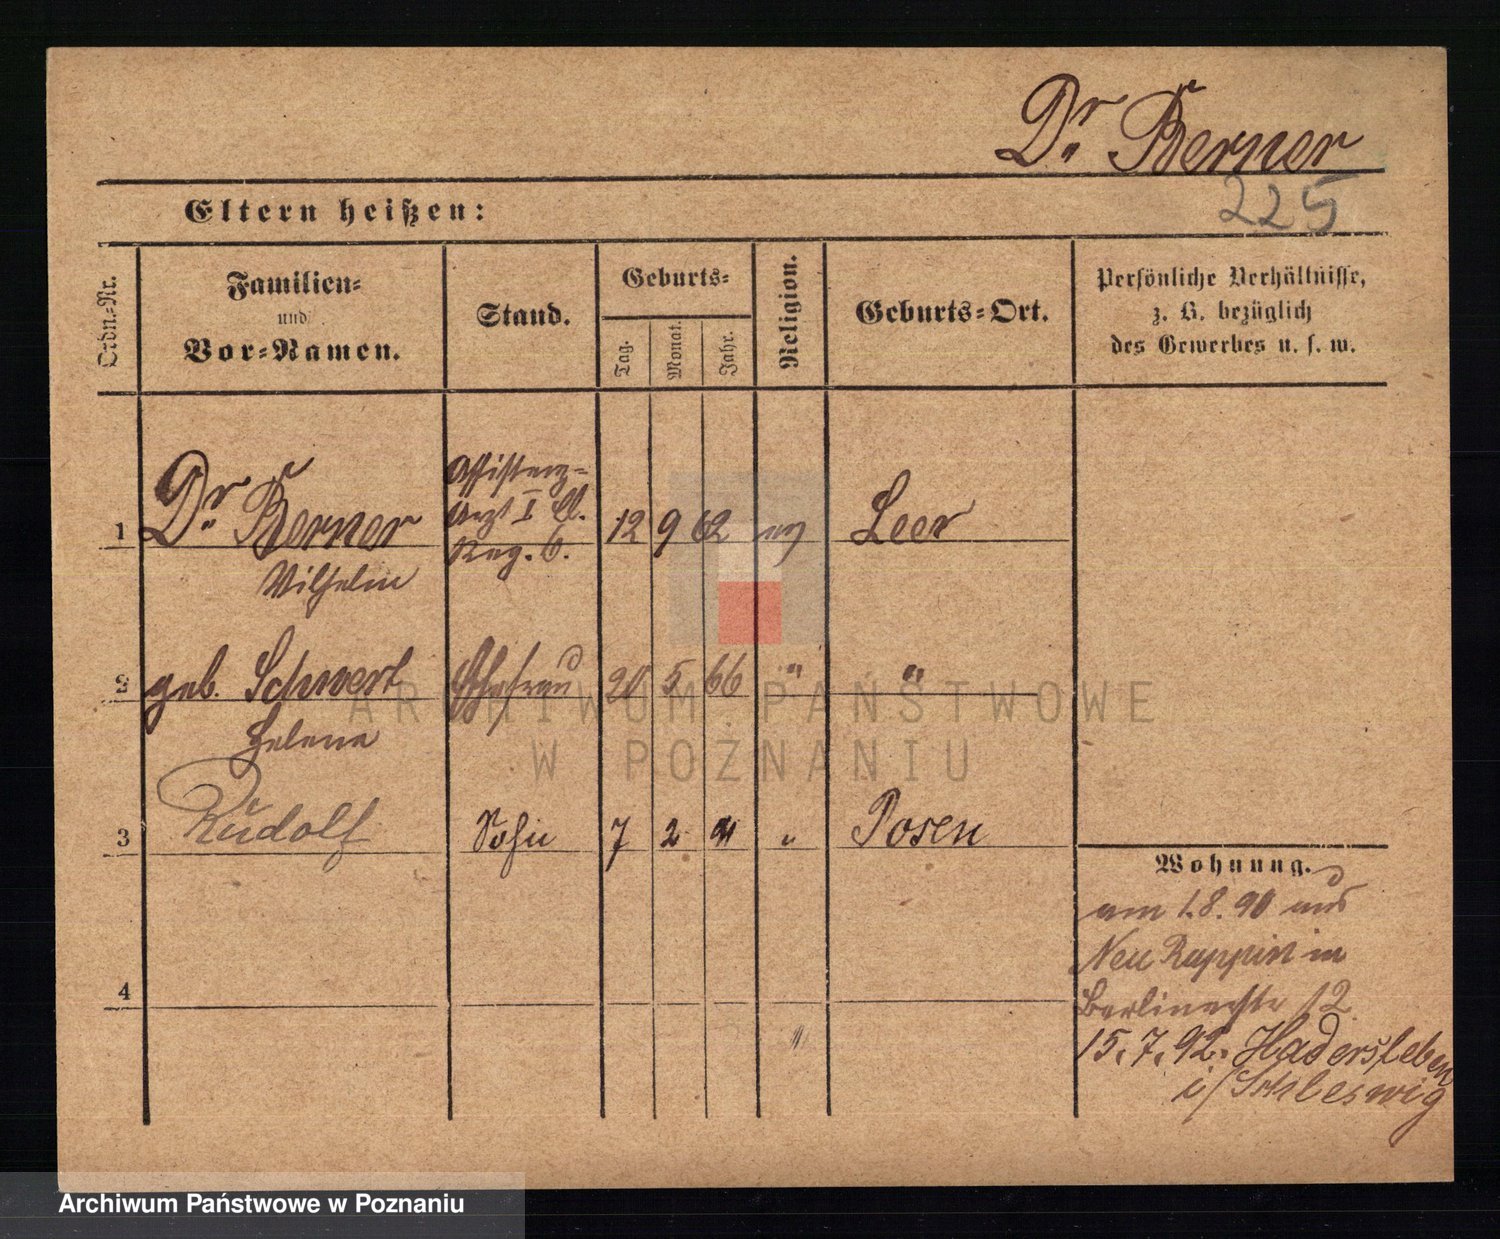 Dr. Berner
225
Eltern heißen:
Ordn.-Nr.
Familien-
und
Vor-Namen.
Stand.
Geburts-
Tag.
Monat.
Jahr.
Religion.
Geburts-Ort.
Persönliche Verhältnisse,
z. B. bezüglich
des Gewerbes u. s. w.
1
Dr. Berner
Wilhelm
Assistenz-
Arzt I Cl.
Reg. 6.
12 9 62 ev Leer
2
geb. Schwert
Helene
Ehefrau 20 5 66 " "
3
Rudolf Sohn 7 2 91 " Posen
4
"
Wohnung.
am 1.8.90 aus
Neu Ruppin in
Berlinerstr 12
15.7.92. Hadersleben
i/Schleswig
ARCHIWUM PAŃSTWOWE
W POZNANIU
Archiwum Państwowe w Poznaniu